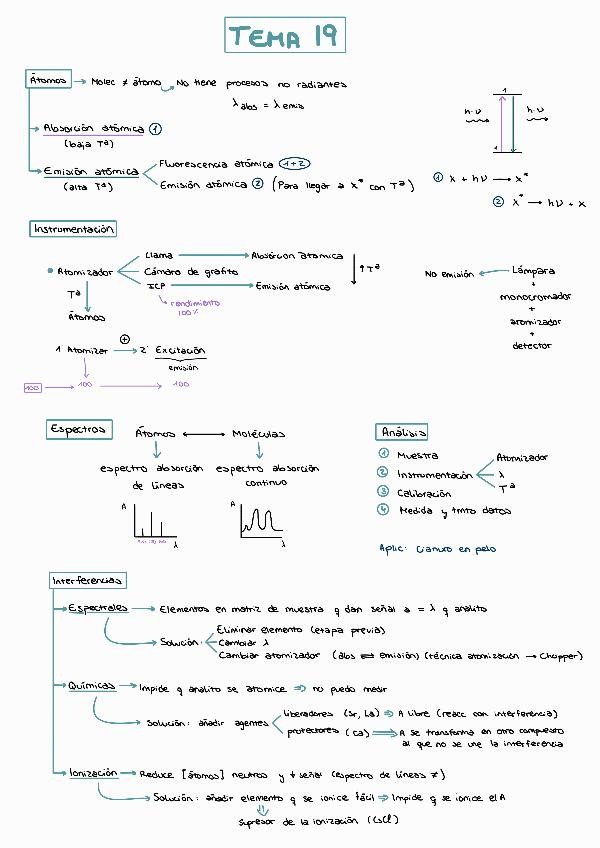 TEMA 19
Átomos → Molec ≠ átomo → No tiene procesos no radiantes
λabs = λemis
Absorción atómica ①
(baja Tª)
Emisión atómica
(alta Tª)
Fluorescencia atómica 1+2
Emisión atómica ② (Para llegar a X* con Tª)
1
h·ν
h·ν
1
① X + hν → X*
② X* → hν + X
Instrumentación
• Atomizador
Llama → Absorción atómica
Cámara de grafito
ICP → Emisión atómica
↑Tª
rendimiento
100%
Tª
Átomos
No emisión ← Lámpara
+
monocromador
+
atomizador
+
detector
+
1º Atomizar → 2º Excitación
emisión
100 → 100 → 100
Espectros
Átomos ↔ Moléculas
espectro absorción
de líneas
espectro absorción
continuo
A
λ
A
λ
Análisis
① Muestra
② Instrumentación
Atomizador
λ
Tª
③ Calibración
④ Medida y tmto datos
Aplic: Cianuro en pelo
Interferencias
Espectrales → Elementos en matriz de muestra q dan señal a = λ q analito
Solución:
Eliminar elemento (etapa previa)
Cambiar λ
Cambiar atomizador (abs ⇔ emisión) (técnica atomización → Chopper)
Químicas → Impide q analito se atomice ⇒ no puedo medir
Solución: añadir agentes
liberadores (Sr, La) ⇒ A libre (reacc con interferencia)
protectores (Ca) ⇒ A se transforma en otro compuesto
al que no se une la interferencia
Ionización → Reduce [átomos] neutros y ≠ señal (espectro de líneas ≠)
Solución: añadir elemento q se ionice fácil ⇒ Impide q se ionice el A
Supresor de la ionización (CsCl)